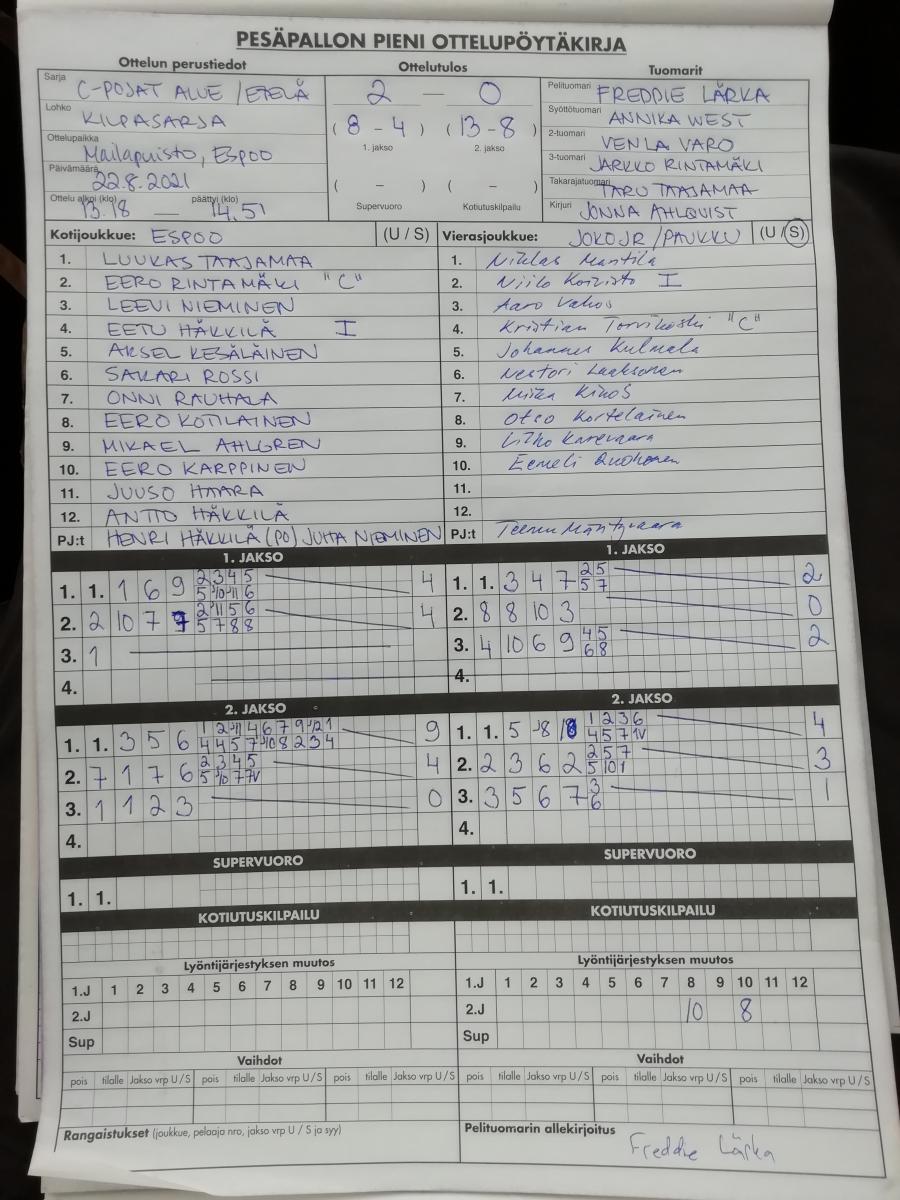 PESÄPALLON PIENI OTTELUPÖYTÄKIRJA
Ottelun perustiedot
Sarja C-POJAT ALUE /ETELÄ
Lohko KILPASARJA
Ottelupaikka Mailapuisto, Espoo
Päivämäärä 22.8.2021
Ottelu alkoi (klo) päättyi (klo)
13.18 — 14.51
Ottelutulos
2 — 0
( 8 - 4 ) ( 13 - 8 )
1. jakso 2. jakso
( - ) ( - )
Supervuoro Kotiutuskilpailu
Tuomarit
Pelituomari FREDDIE LÄRKA
Syöttötuomari ANNIKA WEST
2-tuomari VENLA VARO
3-tuomari JARKKO RINTAMÄKI
Takarajatuomari TARU TAAJAMAA
Kirjuri JONNA AHLQVIST
Kotijoukkue: ESPOO (U / S)
1. LUUKAS TAAJAMAA
2. EERO RINTAMÄKI "C"
3. LEEVI NIEMINEN
4. EETU HÄKKILÄ I
5. AKSEL KESÄLÄINEN
6. SAKARI ROSSI
7. ONNI RAUHALA
8. EERO KOTILAINEN
9. MIKAEL AHLGREN
10. EERO KARPPINEN
11. JUUSO HAARA
12. ANTTO HÄKKILÄ
PJ:t HENRI HÄKKILÄ (PO) JUHA NIEMINEN
Vierasjoukkue: JOKOJR /PAUKKU (U / S)
1. Niklas Mantila
2. Niilo Koivisto I
3. Aaro
4. Kristian Torvikoski "C"
5. Johannes Kulmala
6. Nestori Laaksonen
7.
8. Otto Kortelainen
9.
10. Eemeli
11.
12.
PJ:t Teemu Mäntyvaara
1. JAKSO
1. 1. 1 6 9 2 3 4 5 4
5 10 11 6
2. 2 10 7 9 2 11 5 6 4
5 7 8 8
3. 1
4.
1. JAKSO
1. 1. 3 4 7 2 5 2
5 7
2. 8 8 10 3 0
3. 4 10 6 9 4 5 2
6 8
4.
2. JAKSO
1. 1. 3 5 6 1 2 11 4 6 7 9 12 1 9
4 4 5 7 10 8 2 3 4
2. 7 1 7 6 2 3 4 5 4
5 10 7 7V
3. 1 1 2 3 0
4.
2. JAKSO
1. 1. 5 8 1 2 3 6 4
4 5 7 1V
2. 2 3 6 2 2 5 7 3
5 10 1
3. 3 5 6 7 3 1
6
4.
SUPERVUORO
1. 1.
SUPERVUORO
1. 1.
KOTIUTUSKILPAILU
KOTIUTUSKILPAILU
Lyöntijärjestyksen muutos
1.J 1 2 3 4 5 6 7 8 9 10 11 12
2.J
Sup
Lyöntijärjestyksen muutos
1.J 1 2 3 4 5 6 7 8 9 10 11 12
2.J 10 8
Sup
Vaihdot
pois tilalle Jakso vrp U / S pois tilalle Jakso vrp U / S pois tilalle Jakso vrp U / S
Vaihdot
pois tilalle Jakso vrp U / S pois tilalle Jakso vrp U / S pois tilalle Jakso vrp U / S
Rangaistukset (joukkue, pelaaja nro, jakso vrp U / S ja syy)
Pelituomarin allekirjoitus
Freddie Lärka